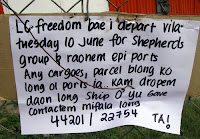 LC freedom bae i depart vila-
tuesday 10 June for Shepherds
group & raonem epi ports
Any cargoes, parcel blong ko
long ol ports ia.. kam dropem
daon long ship o yu save
contactem mifala long
44201 / 22754 TA!